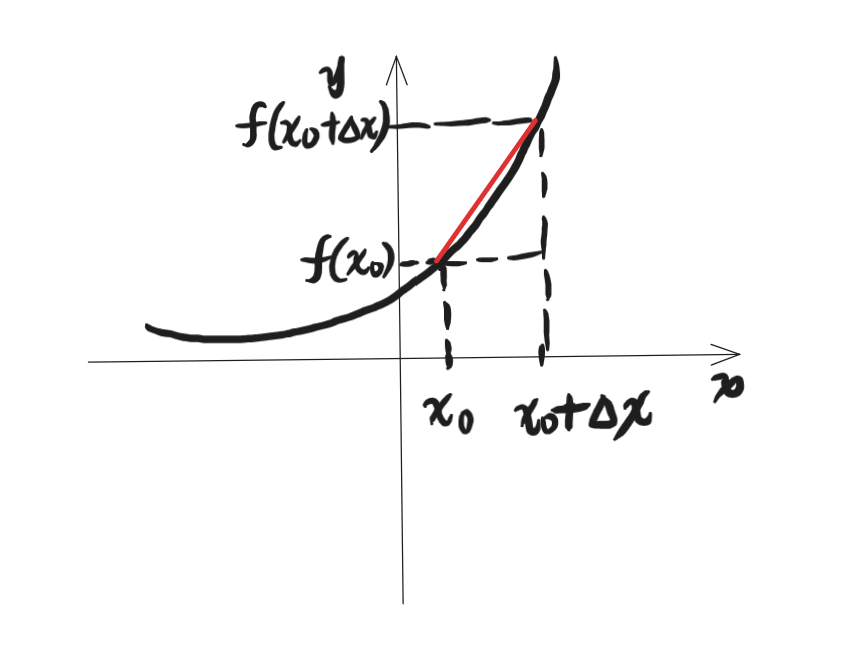 y
f(x₀+Δx)
f(x₀)
x
x₀
x₀+Δx